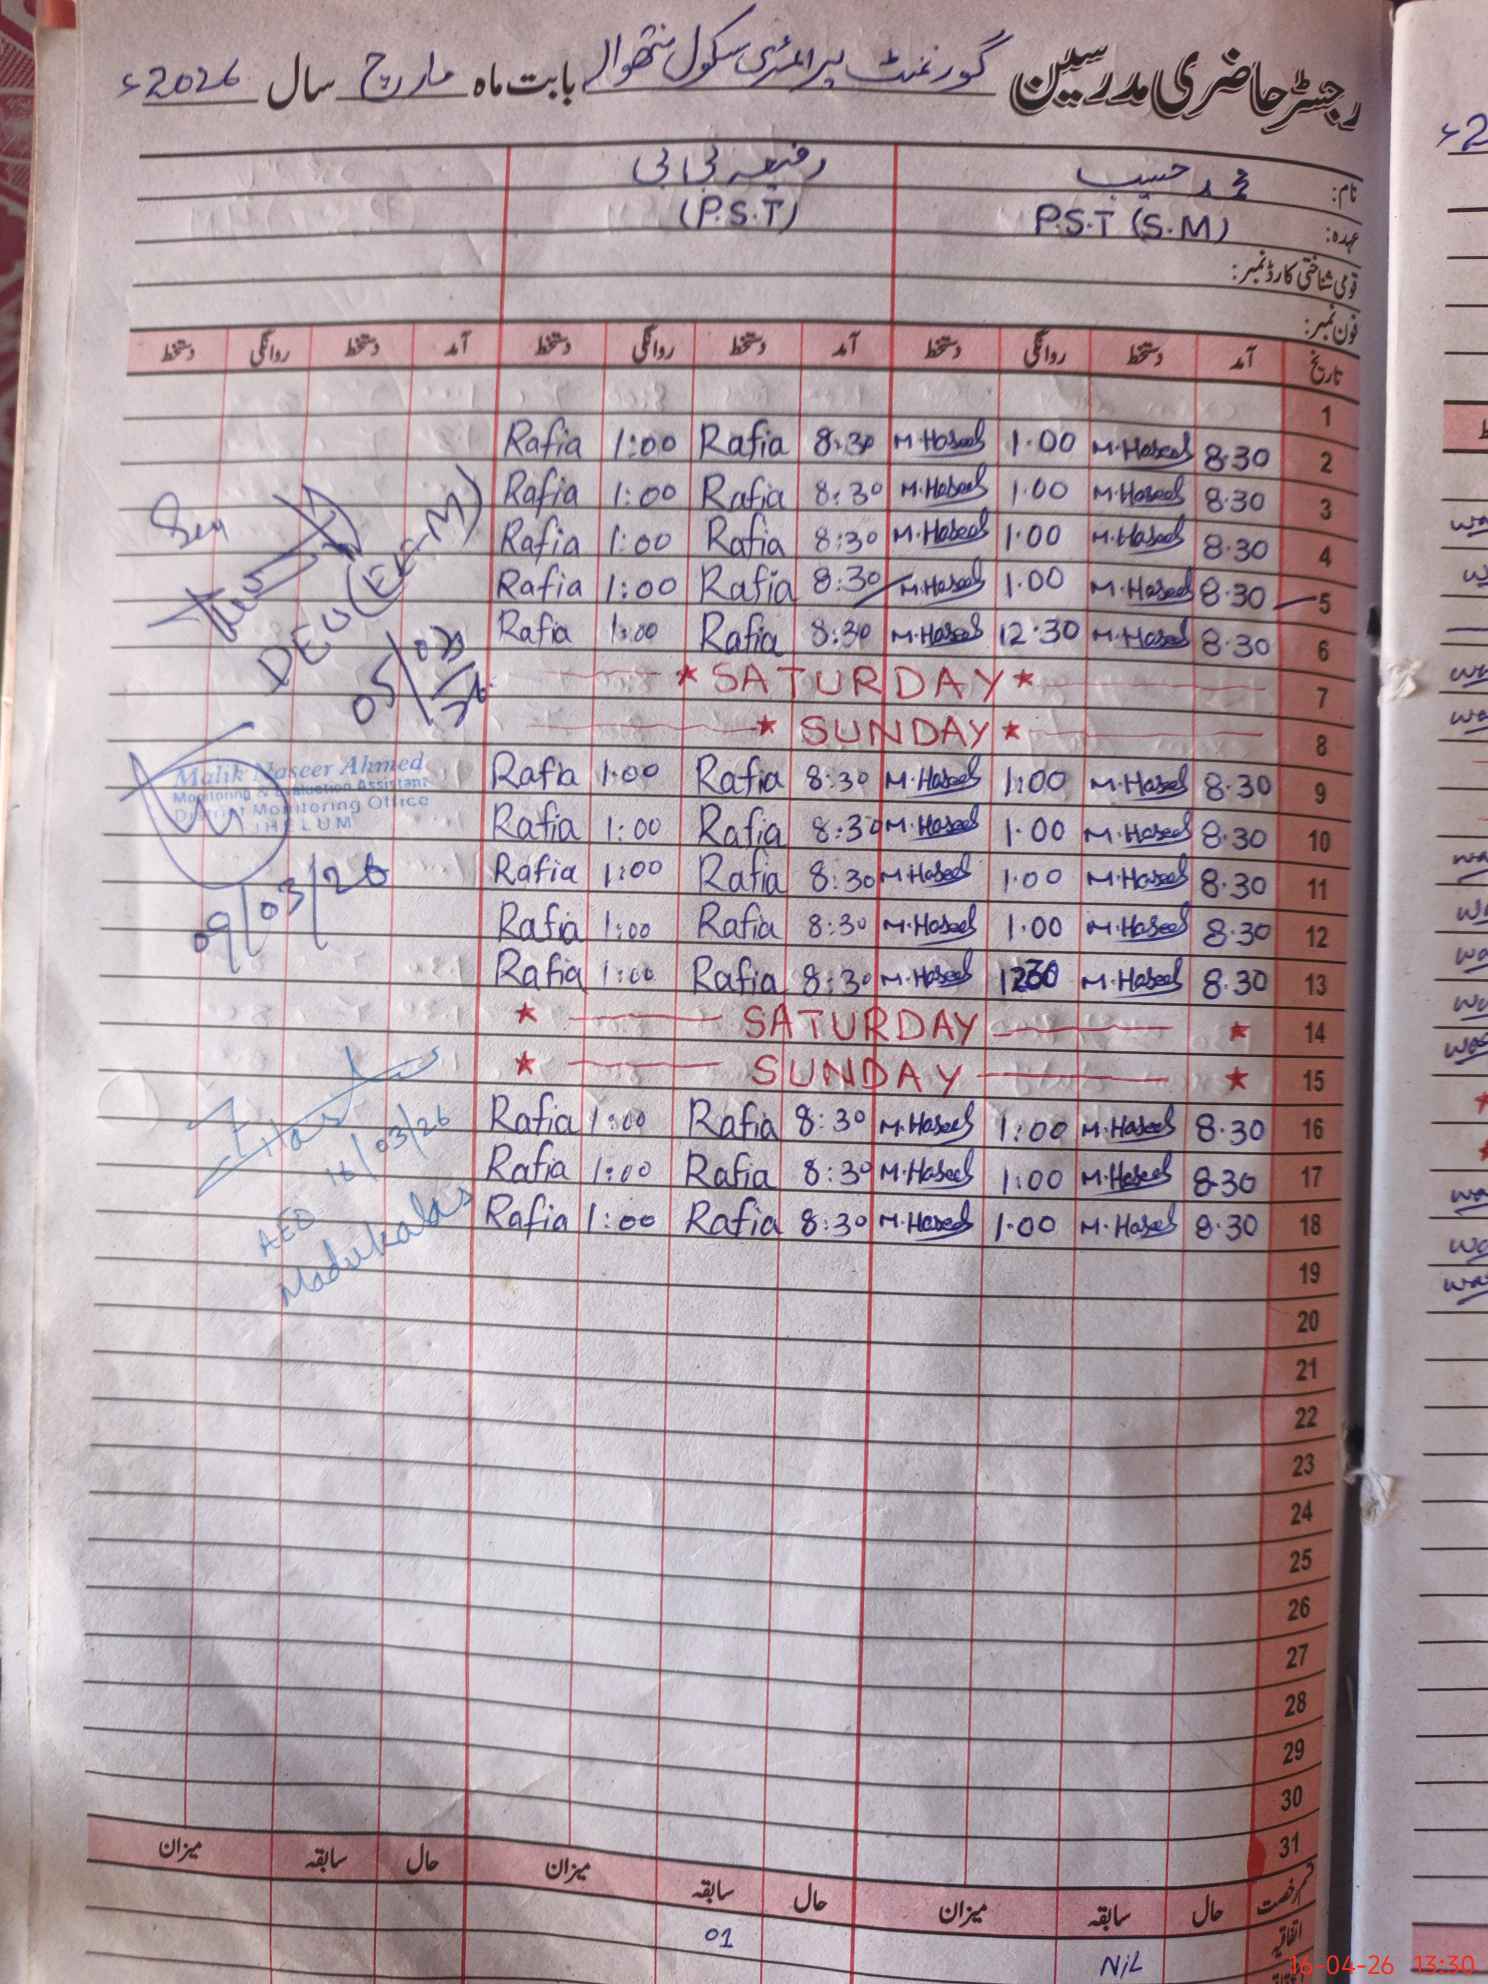 رجسٹر حاضری مدرسین گورنمنٹ پرائمری سکول نتھوالے بابت ماہ مارچ سال 2026ء
نام: محمد حسیب رفیعہ بی بی
عہدہ: P.S.T (S.M) (P.S.T)
قومی شناختی کارڈ نمبر:
فون نمبر:
تاریخ آمد دستخط روانگی دستخط آمد دستخط روانگی دستخط آمد دستخط روانگی دستخط
1
2 8.30 M.Haseeb 1.00 M.Haseeb 8:30 Rafia 1:00 Rafia
3 8.30 M.Haseeb 1.00 M.Haseeb 8:30 Rafia 1:00 Rafia
4 8.30 M.Haseeb 1.00 M.Haseeb 8:30 Rafia 1:00 Rafia
5 8.30 M.Haseeb 1.00 M.Haseeb 8:30 Rafia 1:00 Rafia
6 8.30 M.Haseeb 12.30 M.Haseeb 8:30 Rafia 1:00 Rafia
7 SATURDAY
8 SUNDAY
9 8.30 M.Haseeb 1:00 M.Haseeb 8:30 Rafia 1:00 Rafia
10 8.30 M.Haseeb 1.00 M.Haseeb 8:30 Rafia 1:00 Rafia
11 8.30 M.Haseeb 1.00 M.Haseeb 8:30 Rafia 1:00 Rafia
12 8.30 M.Haseeb 1.00 M.Haseeb 8:30 Rafia 1:00 Rafia
13 8.30 M.Haseeb 1230 M.Haseeb 8:30 Rafia 1:00 Rafia
14 SATURDAY
15 SUNDAY
16 8.30 M.Haseeb 1:00 M.Haseeb 8:30 Rafia 1:00 Rafia
17 8.30 M.Haseeb 1:00 M.Haseeb 8:30 Rafia 1:00 Rafia
18 8.30 M.Haseeb 1.00 M.Haseeb 8:30 Rafia 1:00 Rafia
19
20
21
22
23
24
25
26
27
28
29
30
31
Seen
DEU (EE-M)
05/03/26
Malik Naseer Ahmed
Monitoring & Evaluation Assistant
District Monitoring Office
JHELUM
09/03/26
16/03/26
AEO
Madukalas
قسم رخصت حال سابقہ میزان حال سابقہ میزان حال سابقہ میزان
اتفاقیہ Nil 01
16-04-26 13:30